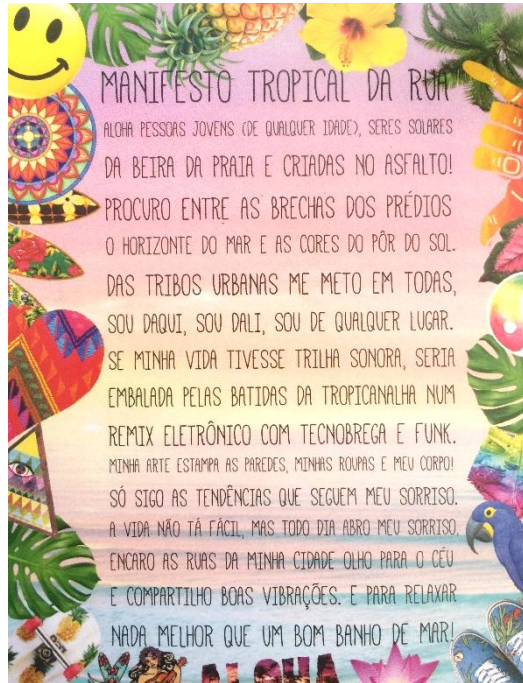 MANIFESTO TROPICAL DA RUA
ALOHA PESSOAS JOVENS (DE QUALQUER IDADE), SERES SOLARES
DA BEIRA DA PRAIA E CRIADAS NO ASFALTO!
PROCURO ENTRE AS BRECHAS DOS PRÉDIOS
O HORIZONTE DO MAR E AS CORES DO PÔR DO SOL.
DAS TRIBOS URBANAS ME METO EM TODAS,
SOU DAQUI, SOU DALI, SOU DE QUALQUER LUGAR.
SE MINHA VIDA TIVESSE TRILHA SONORA, SERIA
EMBALADA PELAS BATIDAS DA TROPICANALHA NUM
REMIX ELETRÔNICO COM TECNOBREGA E FUNK.
MINHA ARTE ESTAMPA AS PAREDES, MINHAS ROUPAS E MEU CORPO!
SÓ SIGO AS TENDÊNCIAS QUE SEGUEM MEU SORRISO.
A VIDA NÃO TÁ FÁCIL, MAS TODO DIA ABRO MEU SORRISO,
ENCARO AS RUAS DA MINHA CIDADE OLHO PARA O CÉU
E COMPARTILHO BOAS VIBRAÇÕES. E PARA RELAXAR
NADA MELHOR QUE UM BOM BANHO DE MAR!
ALOHA